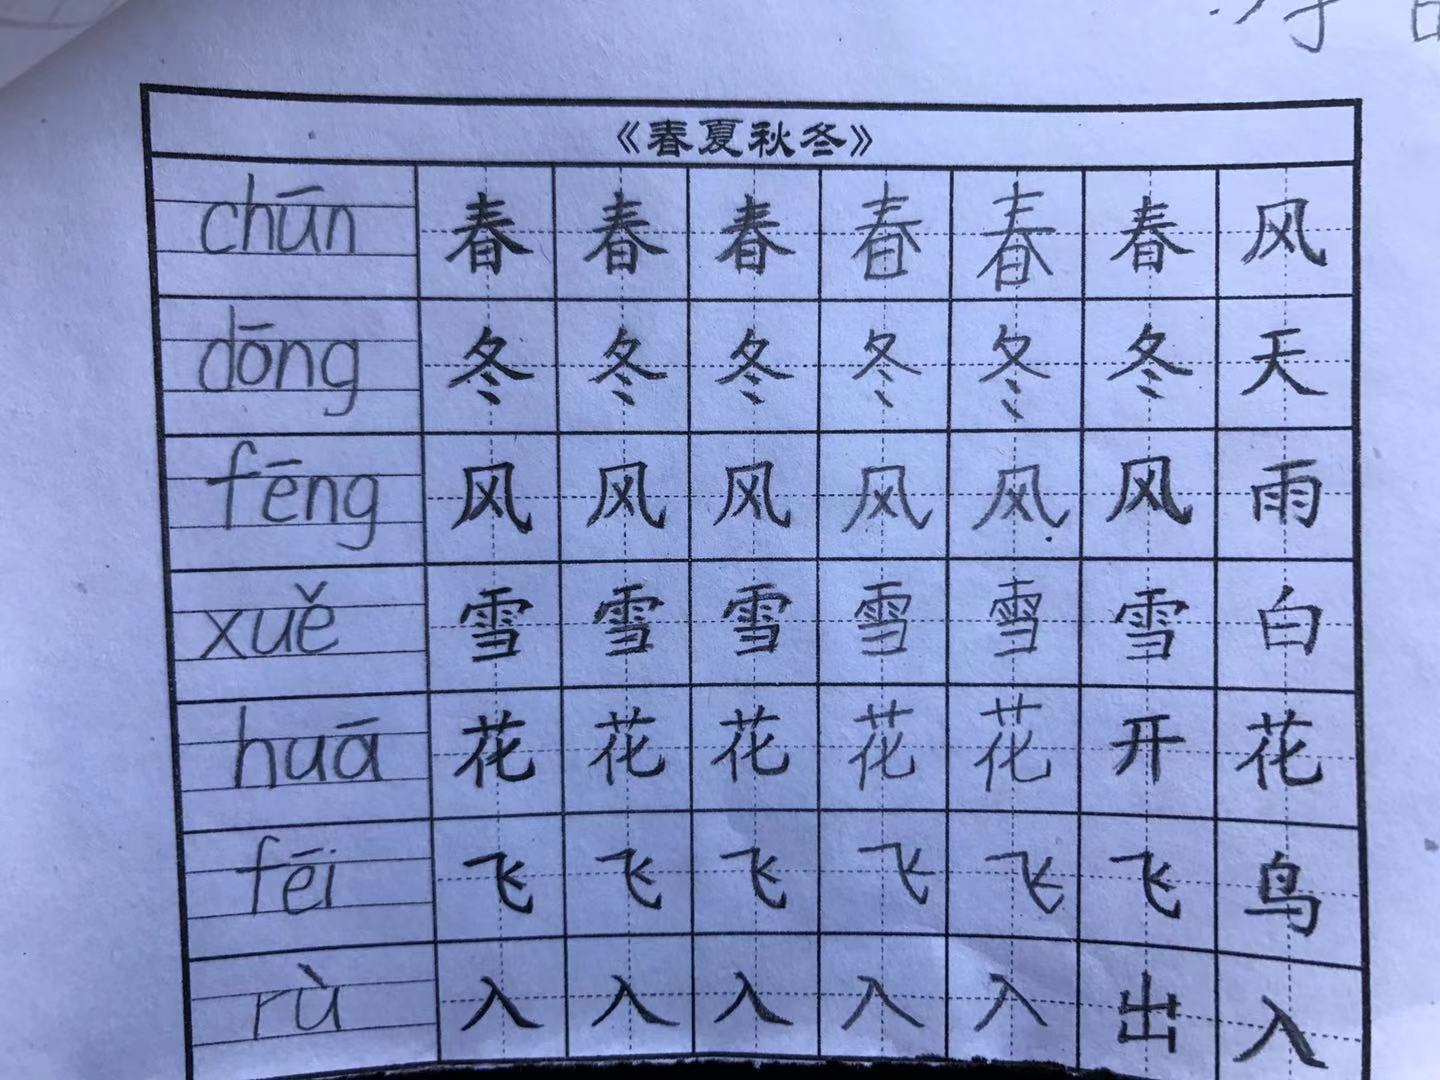 《春夏秋冬》
chūn 春 春 春 春 春 春 风
dōng 冬 冬 冬 冬 冬 冬 天
fēng 风 风 风 风 风 风 雨
xuě 雪 雪 雪 雪 雪 雪 白
huā 花 花 花 花 花 开 花
fēi 飞 飞 飞 飞 飞 飞 鸟
rù 入 入 入 入 入 出 入